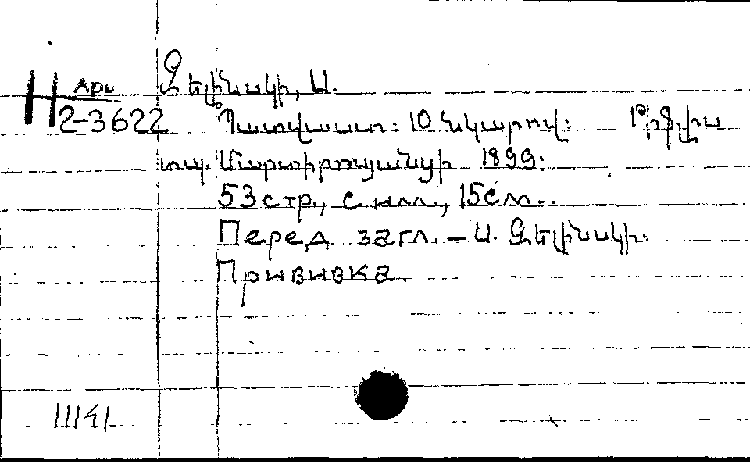 Арм Զելինսկի, Ա.
H 2-3622 Պատվաստ: 10 նկարով: Թիֆլիս
տպ. Մարտիրոսյանցի 1899:
53 стр., с илл., 15 см.
Перед загл. – Ա. Զելինսկի.
Прививка
11141